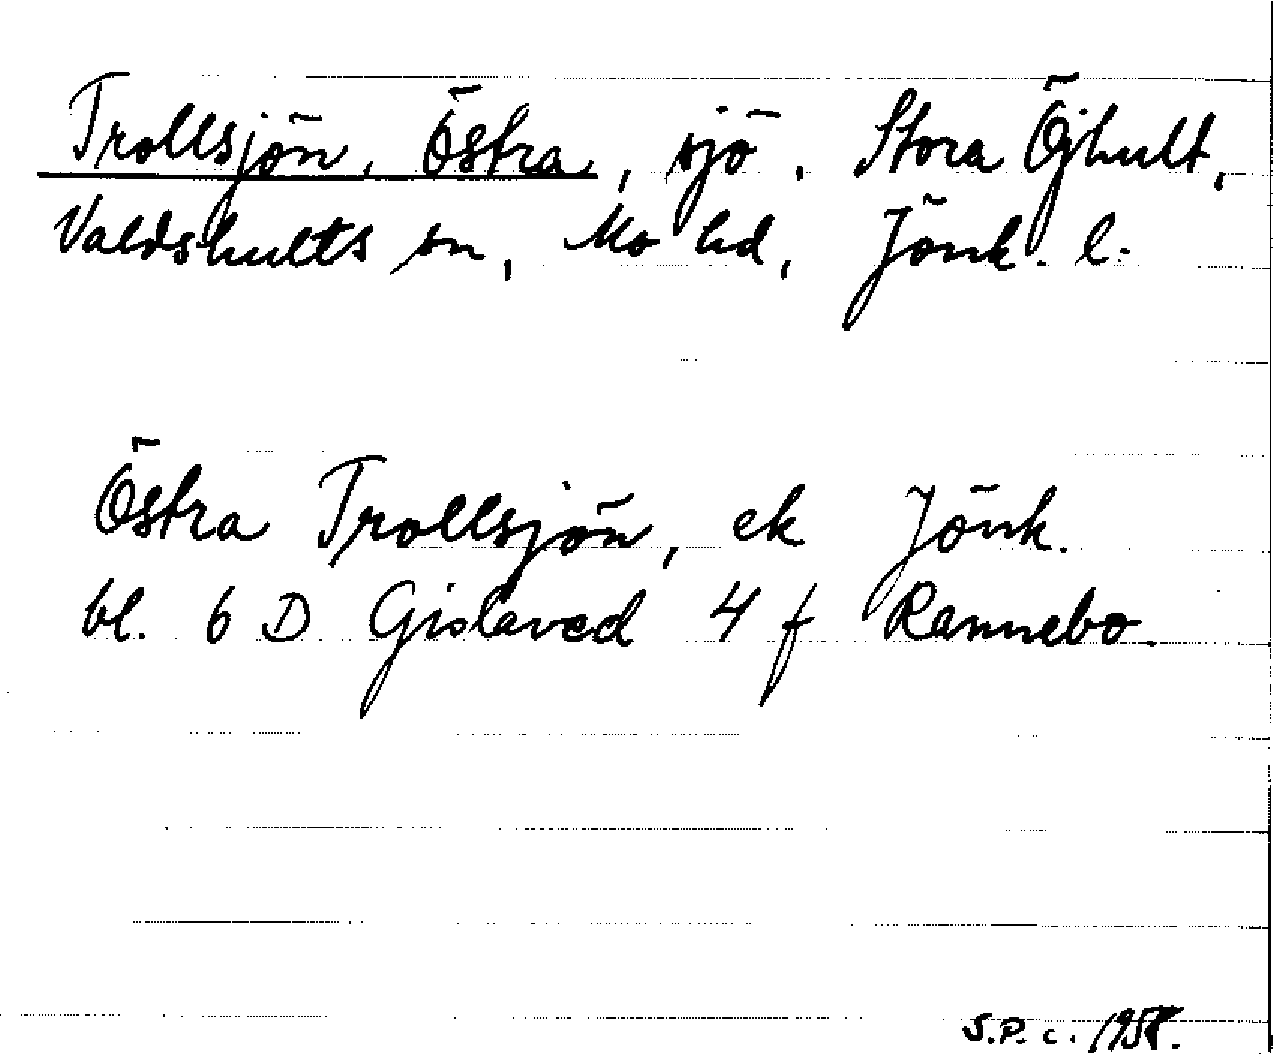 Trollsjön, Östra, sjö, Stora Öjhult,
Valdshults sn, Mo hd, Jönk. l.
Östra Trollsjön, ek Jönk.
bl. 6 D Gislaved 4 f Rannebo.
S.P. c.